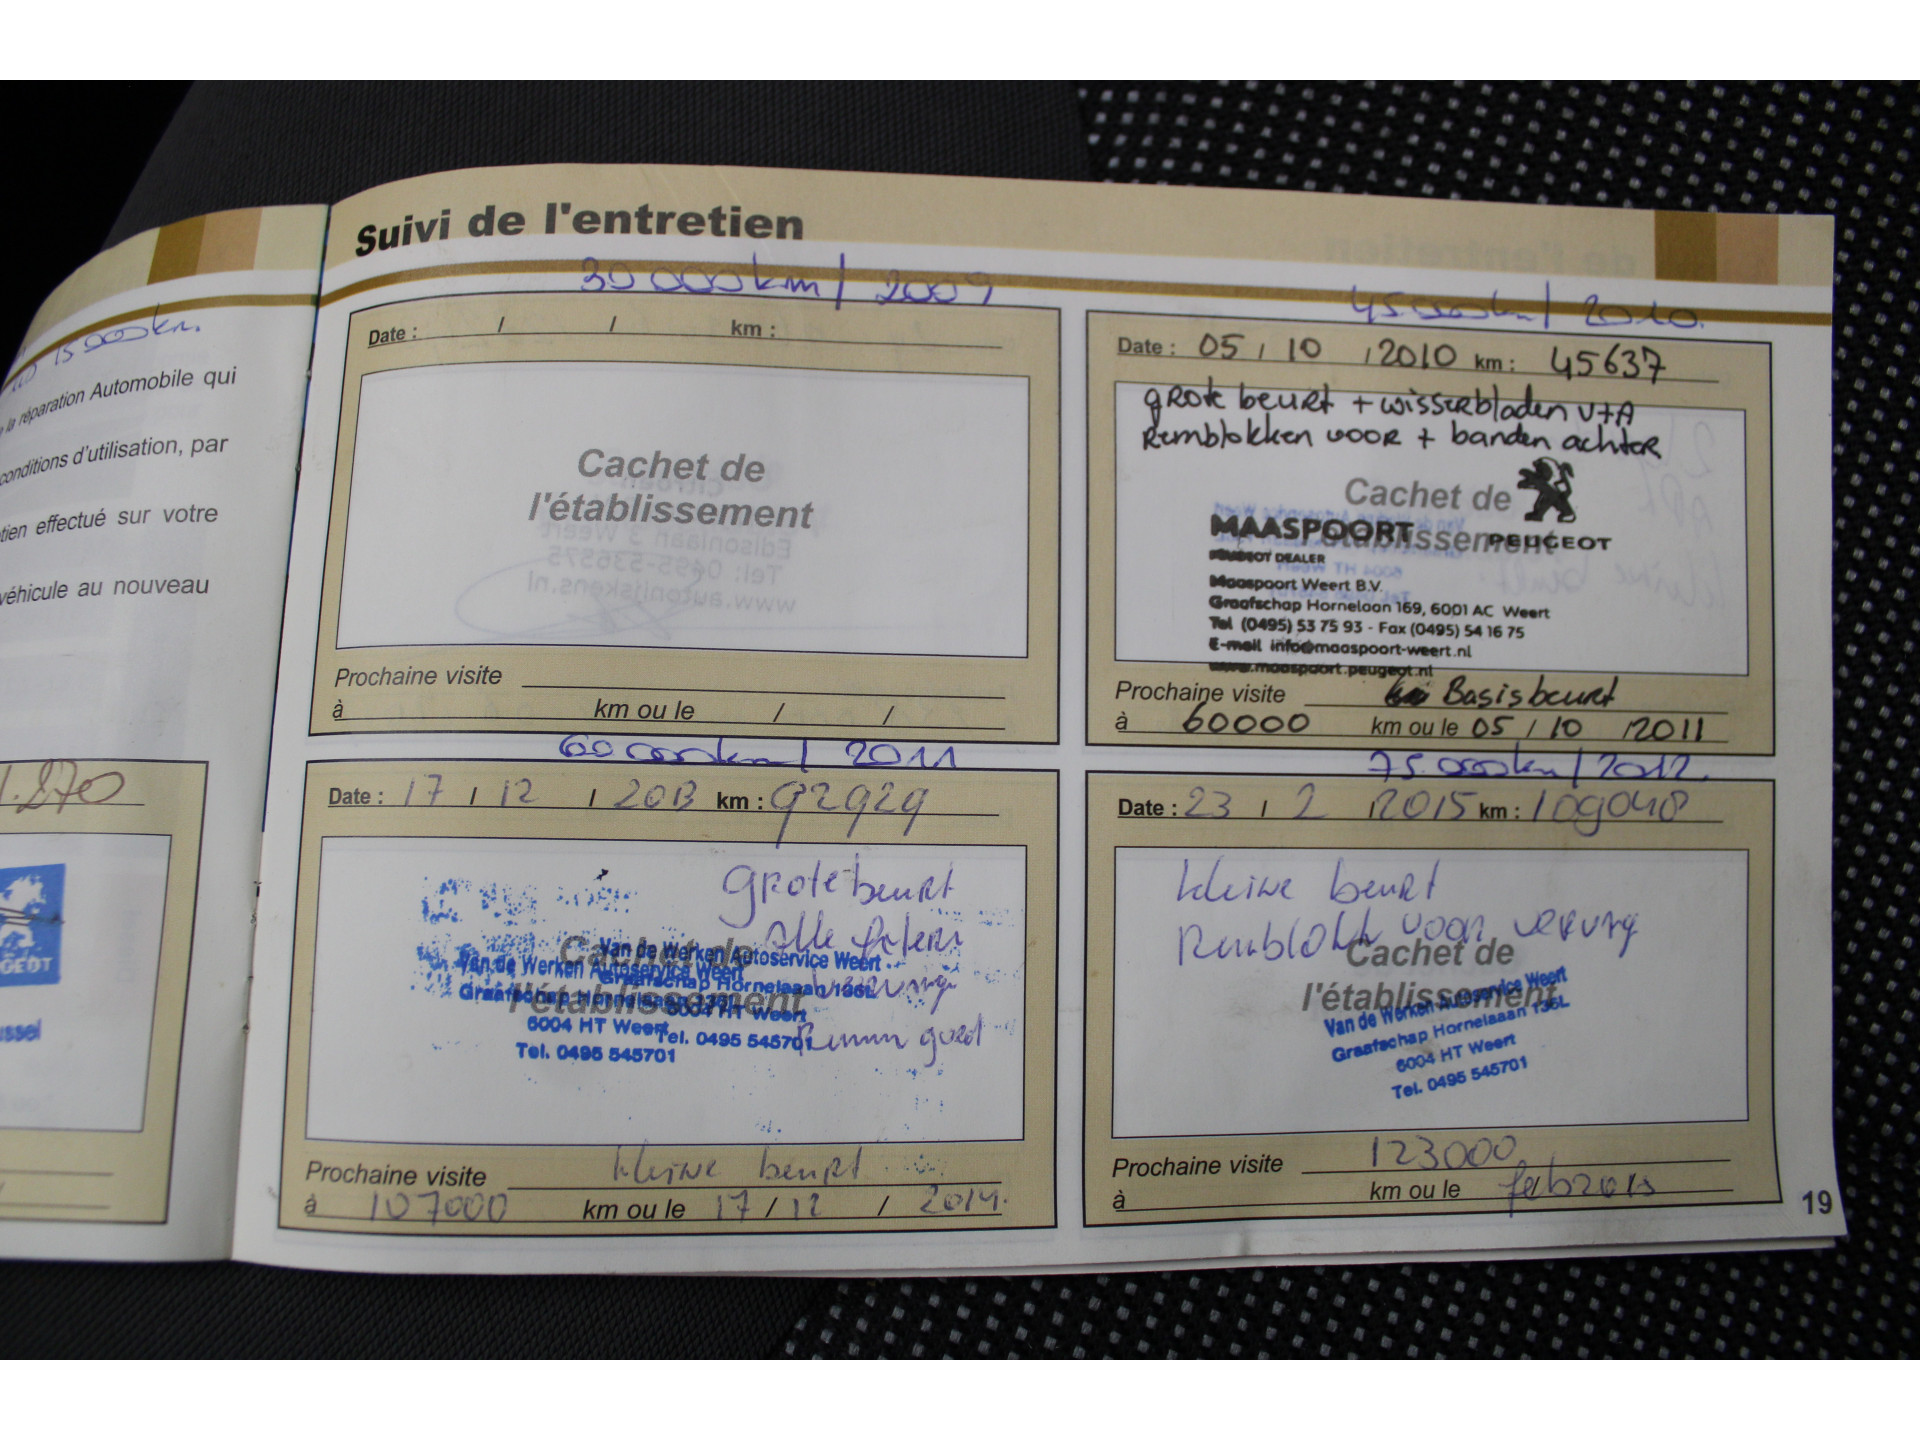 15 000km.
la réparation Automobile qui
conditions d'utilisation, par
effectué sur votre
véhicule au nouveau
.270
Suivi de l'entretien
30 000km / 2009
Date : / / km :
Cachet de
l'établissement
Prochaine visite
à km ou le / /
45.000km / 2010.
Date : 05 / 10 / 2010 km : 45637
grote beurt + wisserbladen V+A
Remblokken voor + banden achter
Cachet de
l'établissement
MAASPOORT PEUGEOT
PEUGEOT DEALER
Maaspoort Weert B.V.
Graafschap Hornelaan 169, 6001 AC Weert
Tel (0495) 53 75 93 - Fax (0495) 54 16 75
E-mail info@maaspoort-weert.nl
www.maaspoort.peugeot.nl
Prochaine visite Basisbeurt
à 60000 km ou le 05 / 10 / 2011
60 000km / 2011
Date : 17 / 12 / 2013 km : 92929
Grote beurt
Alle filters
Cachet de
l'établissement
Van de Werken Autoservice Weert
Graafschap Hornelaaan 136L
6004 HT Weert
Tel. 0495 545701
Van de Werken Autoservice Weert
Graafschap Hornelaaan 136L
6004 HT Weert
Tel. 0495 545701
Remmen goed
Prochaine visite kleine beurt
à 107000 km ou le 17 / 12 / 2014.
75.000km / 2012.
Date : 23 / 2 / 2015 km : 109048
kleine beurt
Remblokk voor vervung
Cachet de
l'établissement
Van de Werken Autoservice Weert
Graafschap Hornelaaan 136L
6004 HT Weert
Tel. 0495 545701
Prochaine visite 123000
à km ou le feb 2015
19